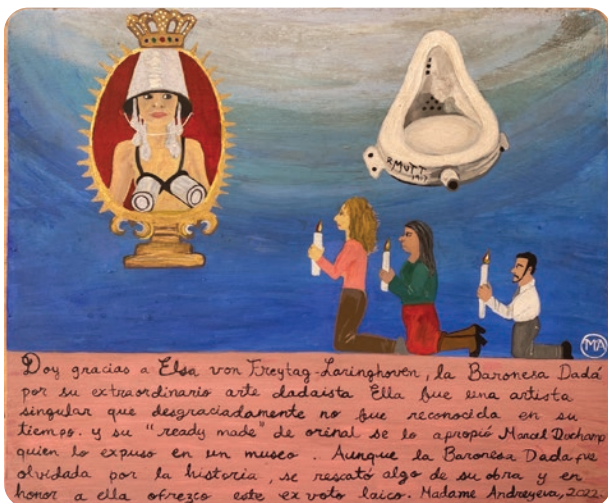 R.MUTT
1917
MA
Doy gracias a Elsa von Freytag-Loringhoven, la Baronesa Dadá
por su extraordinario arte dadaista Ella fue una artista
singular que desgraciadamente no fue reconocida en su
tiempo. y su "ready made" de orinal se lo apropió Marcel Duchamp
quien lo expuso en un museo. Aunque la Baronesa Dada fue
olvidada por la historia, se rescató algo de su obra y en
honor a ella ofrezco este ex voto laico. Madame Andreyeva, 2022